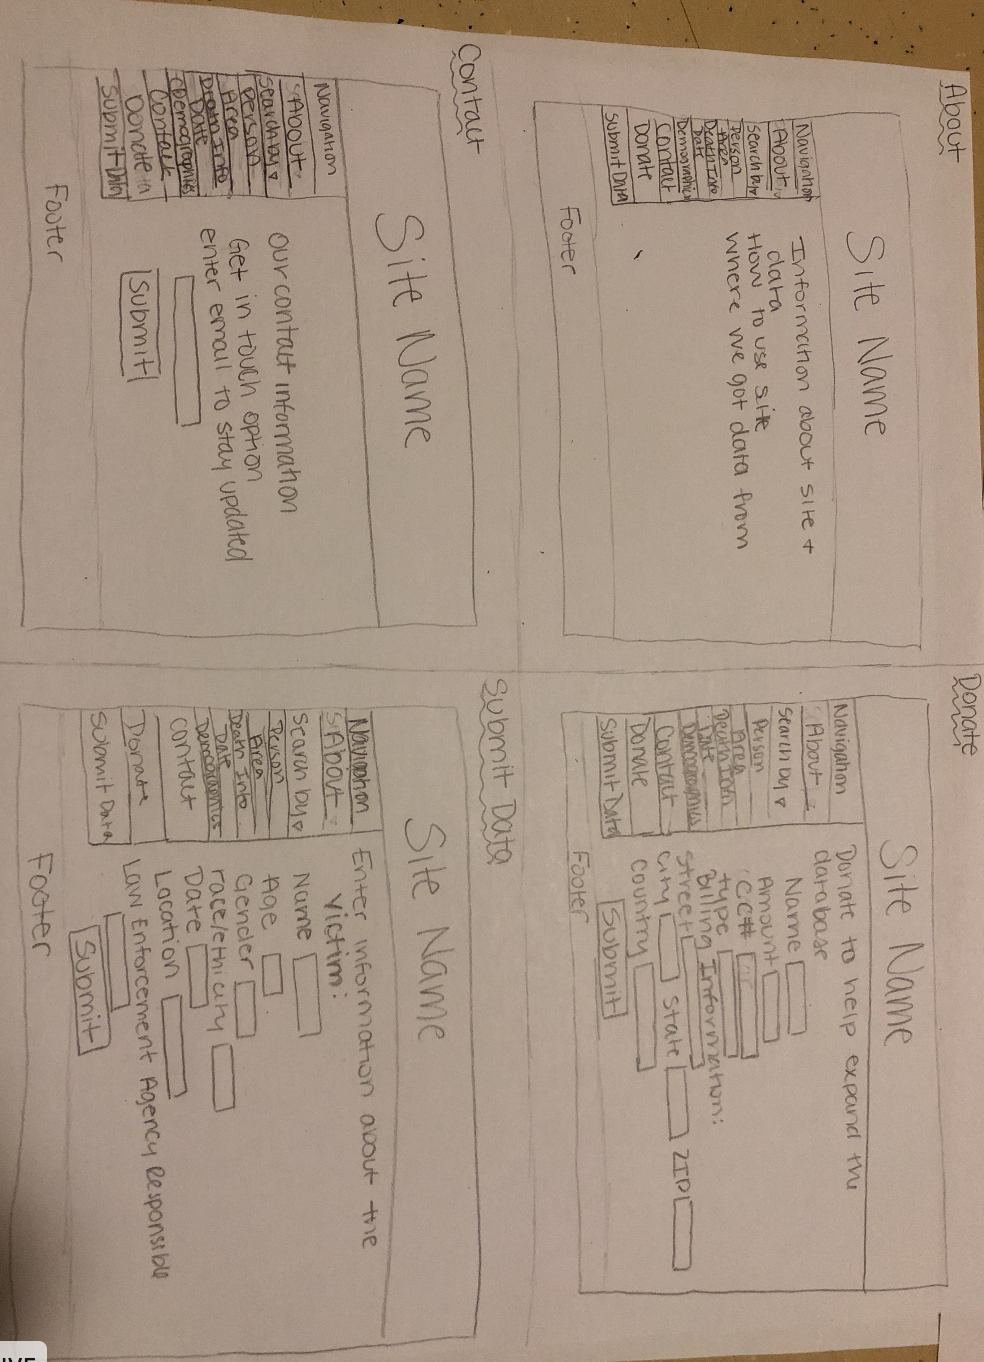 About
Site Name
Navigation
About
Search by ▾
Person
Area
Death Info
Date
Demographics
Contact
Donate
Submit Data
Information about site +
data
How to use site
where we got data from
Footer
Donate
Site Name
Navigation
About
Search by ▾
Person
Area
Death Info
Date
Demographics
Contact
Donate
Submit Data
Donate to help expand the
database
Name
Amount
CC#
type
Billing Information:
Street
City State ZIP
Country
Submit
Footer
Contact
Site Name
Navigation
About
Search by ▾
Person
Area
Death Info
Date
Demographics
Contact
Donate
Submit Data
our contact information
Get in touch option
enter email to stay updated
Submit
Footer
Submit Data
Site Name
Navigation
About
Search by ▾
Person
Area
Death Info
Date
Demographics
Contact
Donate
Submit Data
Enter information about the
victim:
Name
Age
Gender
race/ethicity
Date
Location
Law Enforcement Agency Responsible
Submit
Footer